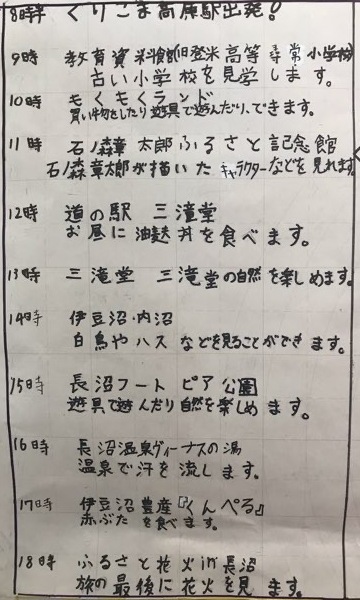 8時半 くりこま高原駅出発!
9時 教育資料館旧登米高等尋常小学校
古い小学校を見学します。
10時 もくもくランド
買い物をしたり遊具で遊んだり、できます。
11時 石ノ森章太郎ふるさと記念館
石ノ森章太郎が描いたキャラクターなどを見れます
12時 道の駅 三滝堂
お昼に油麩丼を食べます。
13時 三滝堂 三滝堂の自然を楽しめます。
14時 伊豆沼・内沼
白鳥やハスなどを見ることができます。
15時 長沼フートピア公園
遊具で遊んだり自然を楽しめます。
16時 長沼温泉ヴィーナスの湯
温泉で汗を流します。
17時 伊豆沼豊産『くんぺる』
赤ぶたを食べます。
18時 ふるさと花火in長沼
旅の最後に花火を見ます。